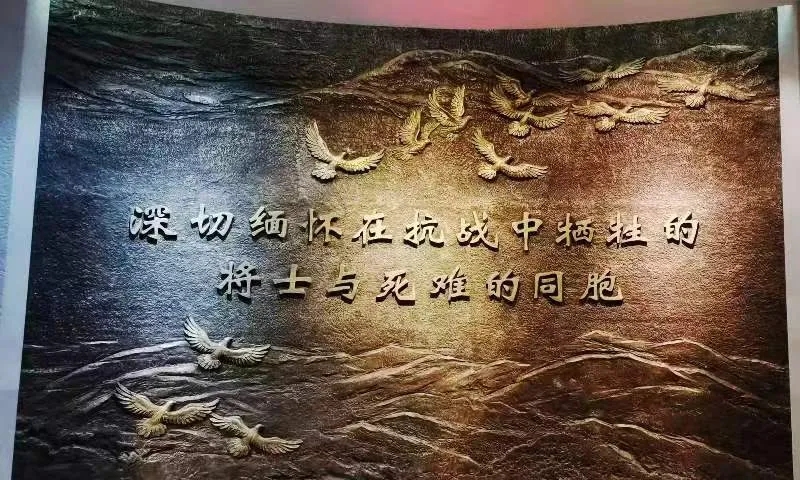 深切缅怀在抗战中牺牲的
将士与死难的同胞